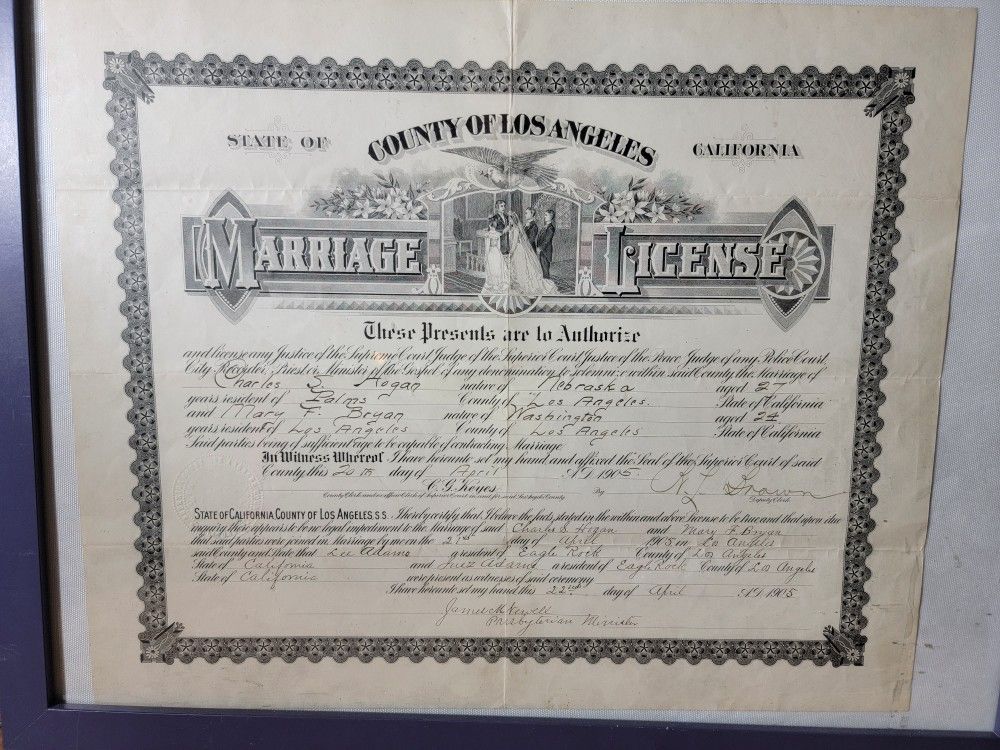 STATE OF COUNTY OF LOS ANGELES CALIFORNIA
MARRIAGE LICENSE
These Presents are to Authorize
and license any Justice of the Supreme Court Judge of the Superior Court Justice of the Peace Judge of any Police Court
City Recorder Priest or Minister of the Gospel of any denomination to solemnize within said County the Marriage of
Charles S. Hogan native of Nebraska aged 27
years resident of Palms County of Los Angeles. State of California
and Mary F. Bryan native of Washington aged 24
years resident of Los Angeles County of Los Angeles State of California
Said parties being of sufficient age to be capable of contracting Marriage.
In Witness Whereof I have hereunto set my hand and affixed the Seal of the Superior Court of said
County this 20th day of April A.D. 1905
C. G. Keyes By Brown
County Clerk and ex officio Clerk of Superior Court in and for Los Angeles County Deputy Clerk
STATE OF CALIFORNIA, COUNTY OF LOS ANGELES, S.S. I hereby certify that I believe the facts stated in the within and above license to be true and that upon due
inquiry there appears to be no legal impediment to the Marriage of said Charles S. Hogan and Mary F. Bryan
that said parties were joined in Marriage by me on the 21st day of April 1905 in Los Angeles
said County and State that Lee Adams a resident of Eagle Rock County of Los Angeles
State of California and Inez Adams a resident of Eagle Rock County of Los Angeles
State of California were present as witnesses of said ceremony
I have hereunto set my hand this 22nd day of April A.D. 1905
Presbyterian Minister